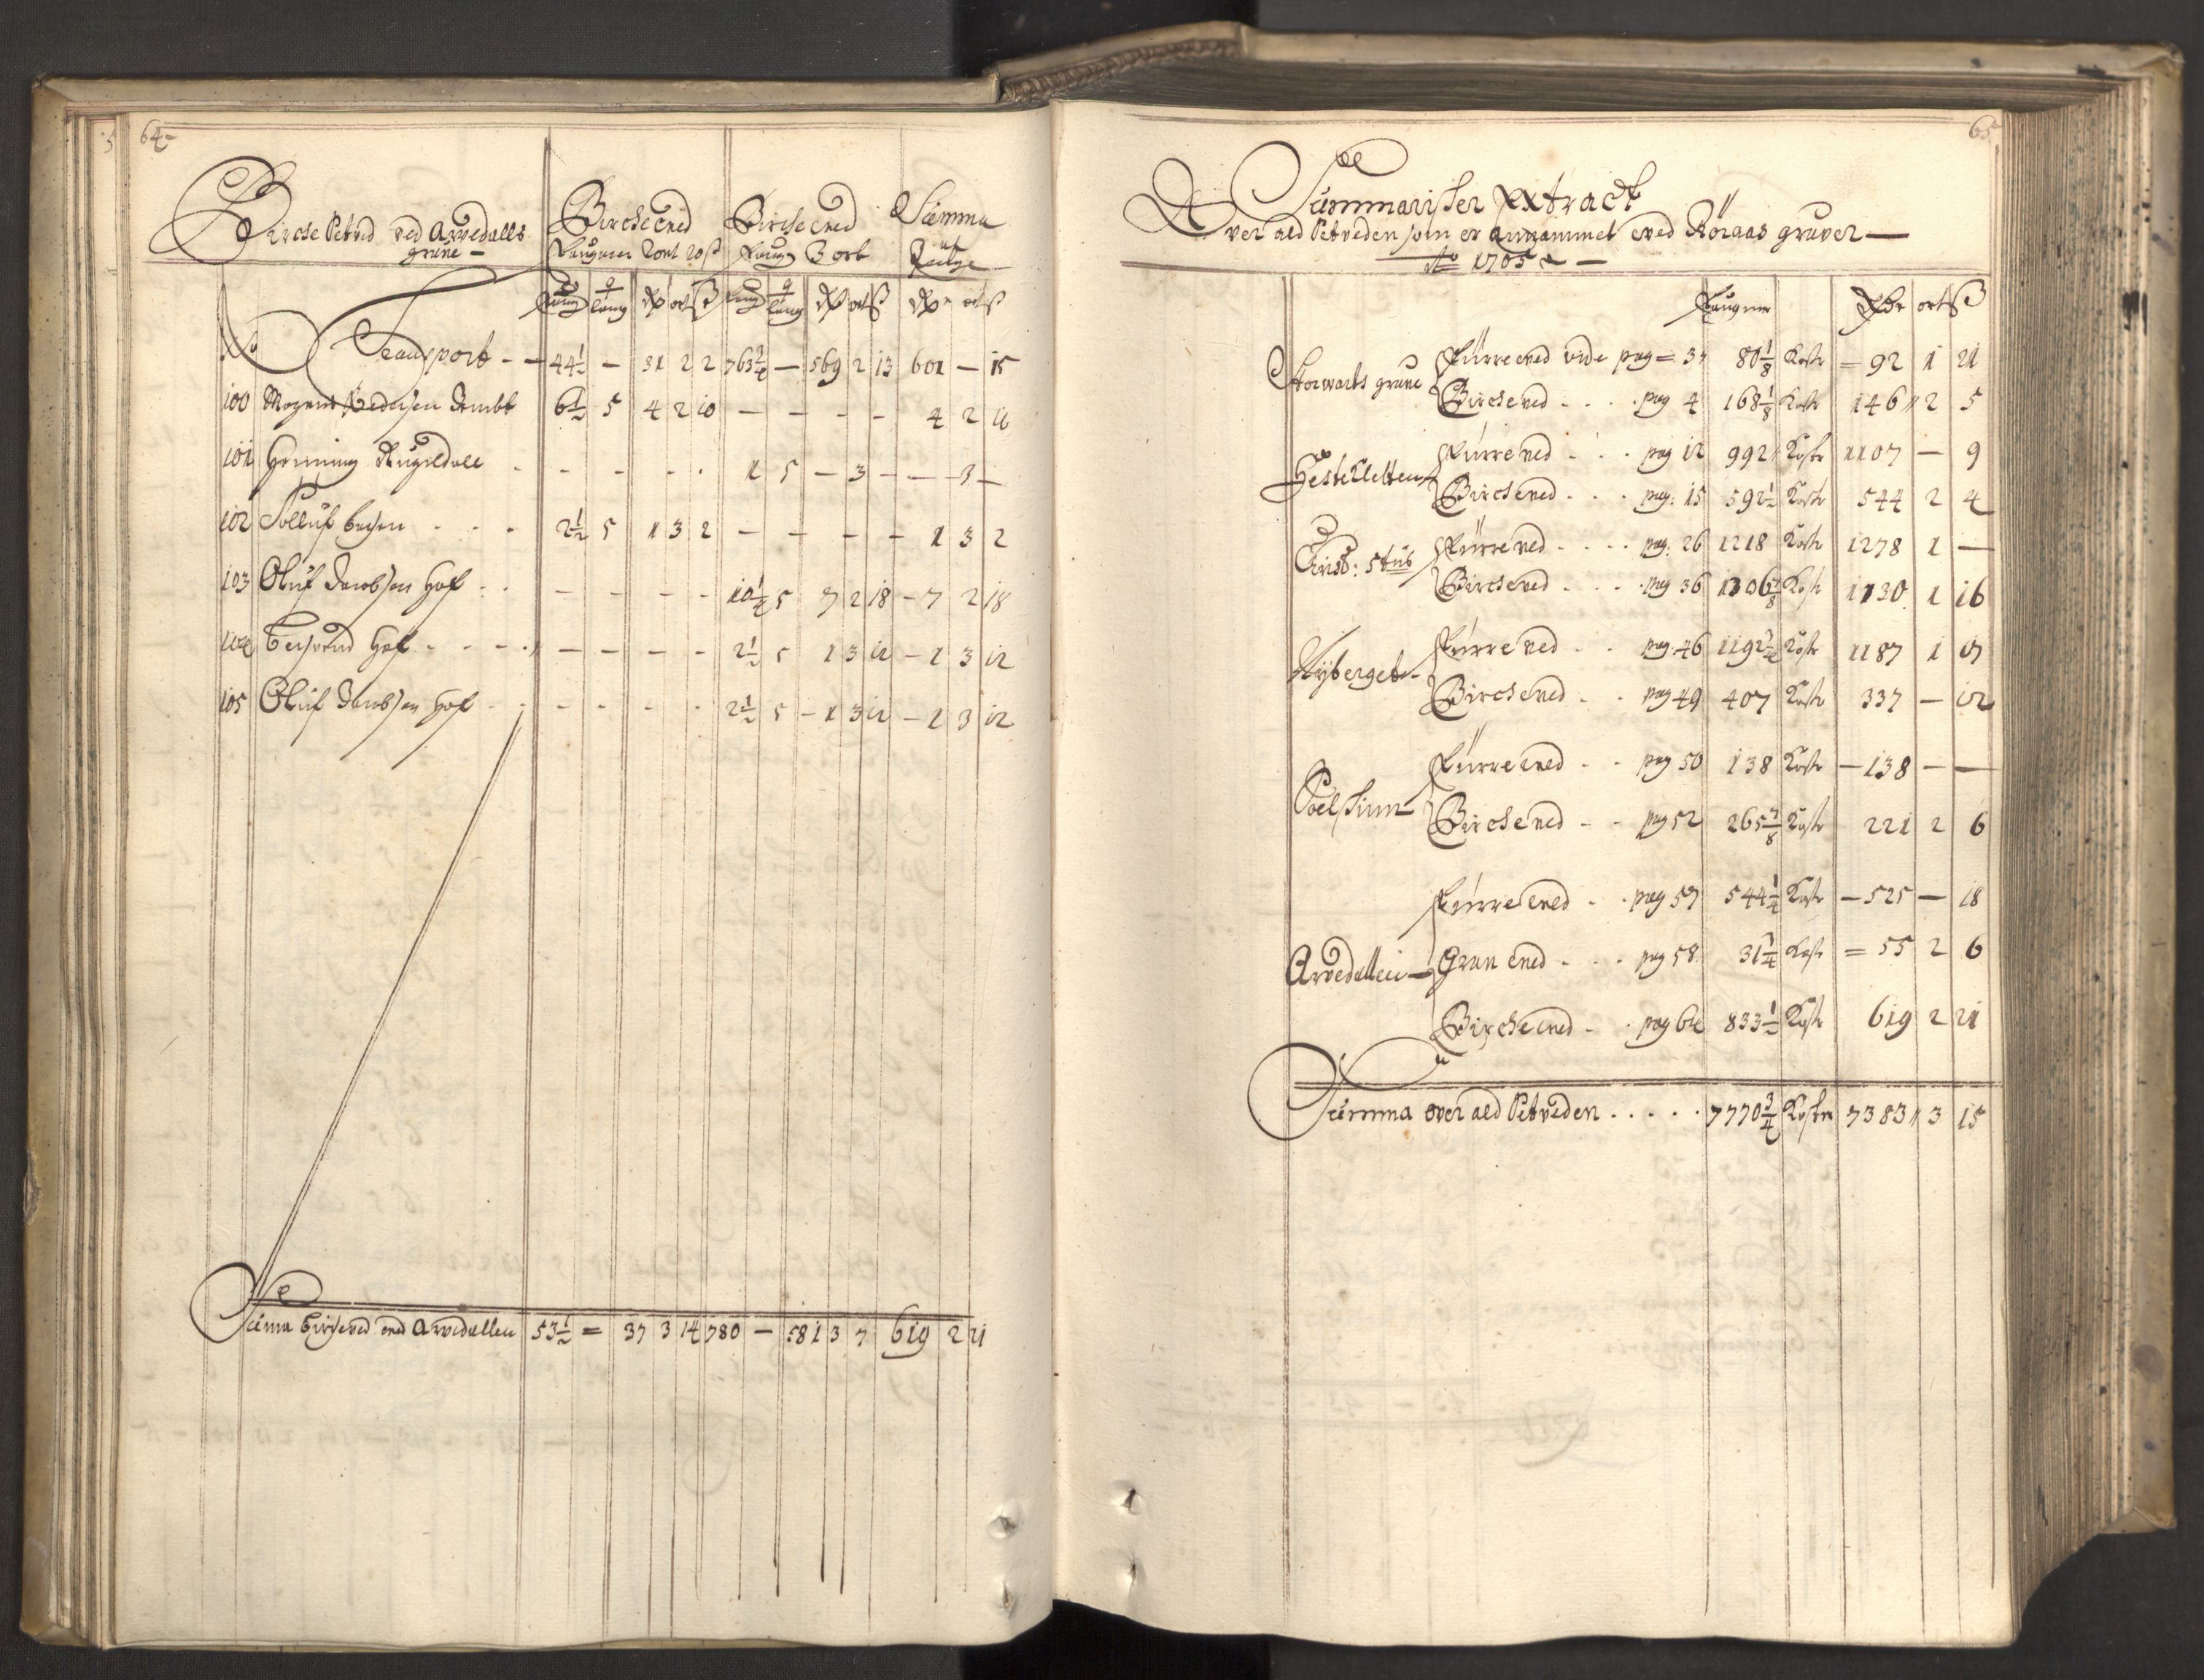 64
Birche Setved ved Arvedalls
grube
Bircheved
Faugner 2 ort 20 ß
Bircheved
Faug 3 ort
Summa
Penge
Faug
laug
Rdr ort ß
Faug
laug
Rdr ort ß
Rdr ort ß
No Transport - - 44½ - 31 2 2 763¾ - 569 2 13 601 - 15
100 Mogens Pedersen 6½ 5 4 2 10 - - - - 4 2 10
101 Henning - - - - 1 5 - 3 - - 3 -
102 Solluf 2½ 5 1 3 2 - - - - 1 3 2
103 Oluf Jacobsen Hof - - - - 10¼ 5 7 2 18 - 7 2 18
104 Hof - - - - 2½ 5 1 3 12 - 1 3 12
105 Oluf Jacobsen Hof - - - - 2½ 5 - 1 3 12 - 1 3 12
Suma Bircheved ved Arvedallen 53½ = 37 3 14 780 - 581 3 7 619 2 21
65
Summarisker Extract
Over ald Setveden som er annammet ved Röraas gruver
Ao 1705
Faugner Rdr ort ß
Storwarts grube Fürreved vide pag = 3 80⅛ Koster = 92 1 21
Bircheved - - - pag 4 168⅛ Koster 146 2 5
Hestekletten Fürreved - - - pag 12 992 Koster 1107 - 9
Bircheved - - - pag: 15 592½ Koster 544 2 4
Christ: 5tus Fürreved - - - pag: 26 1218 Koster 1278 1 -
Bircheved - - - pag 36 1306⅞ Koster 1130 1 16
Nÿberget Fürreved - - pag: 46 1192¾ Koster 1187 1 07
Bircheved - - pag 49 407 Koster 337 - 12
Fürreved - - pag 50 138 Koster - 138 - -
Bircheved - - pag 52 265⅞ Koster 221 2 6
Fürreved - - pag 57 544¼ Koster - 525 - 18
Arvedallen Gran ved - - - pag 58 31¾ Koster = 55 2 6
Bircheved - - pag 64 833½ Koster 619 2 21
Summa over ald Setveden . . . . . 7770¾ Koster 7383 3 15